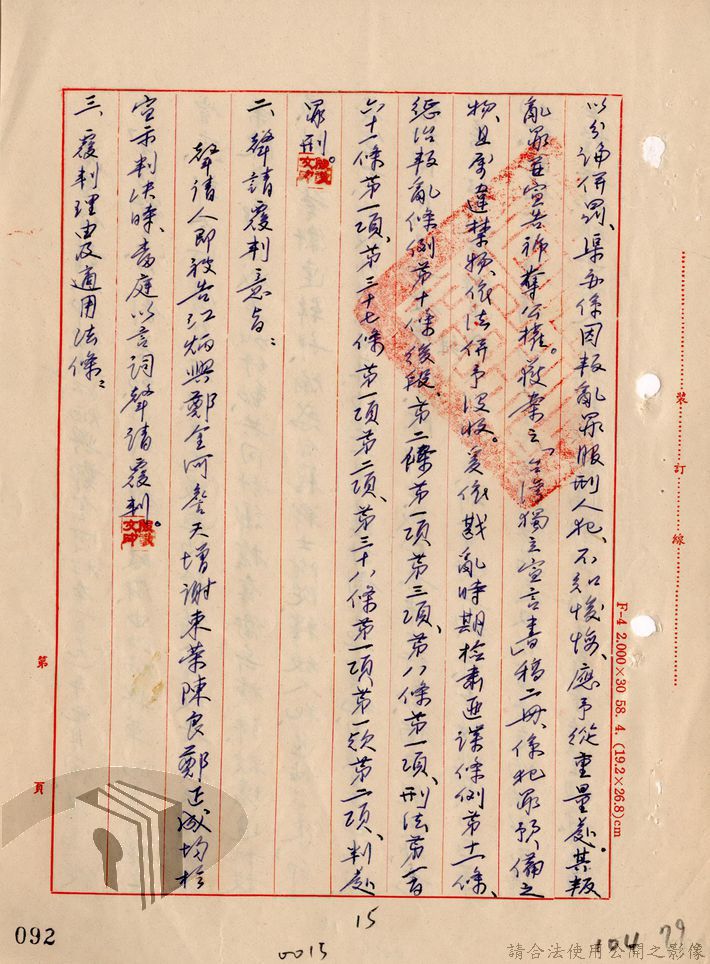 以分論併罰、渠等係因叛亂罪服刑人犯、不知悛悔、應予從重量處。其叛
亂罪並宣告褫奪公權。獲案之「台灣獨立宣言書」稿二冊、係犯罪預備之
物、且屬違禁物、依法併予沒收。爰依戡亂時期檢肅匪諜條例第十一條、
懲治叛亂條例第十條後段、第二條第一項、第三項、第八條第一項、刑法第一百
六十一條第一項、第三十七條第一項、第二項、第三十八條第一項、第一款、第二項、判處
罪刑。
二、聲請覆判意旨:
聲請人即被告江炳興鄭金河詹天增謝東榮陳良鄭正成均於
宣示判決時、當庭以言詞聲請覆判。
三、覆判理由及適用法條:
裝訂線
F-4 2,000×30 58. 4. (19.2×26.8)cm
第 頁
15
0015
092
104
79
請合法使用公開之影像